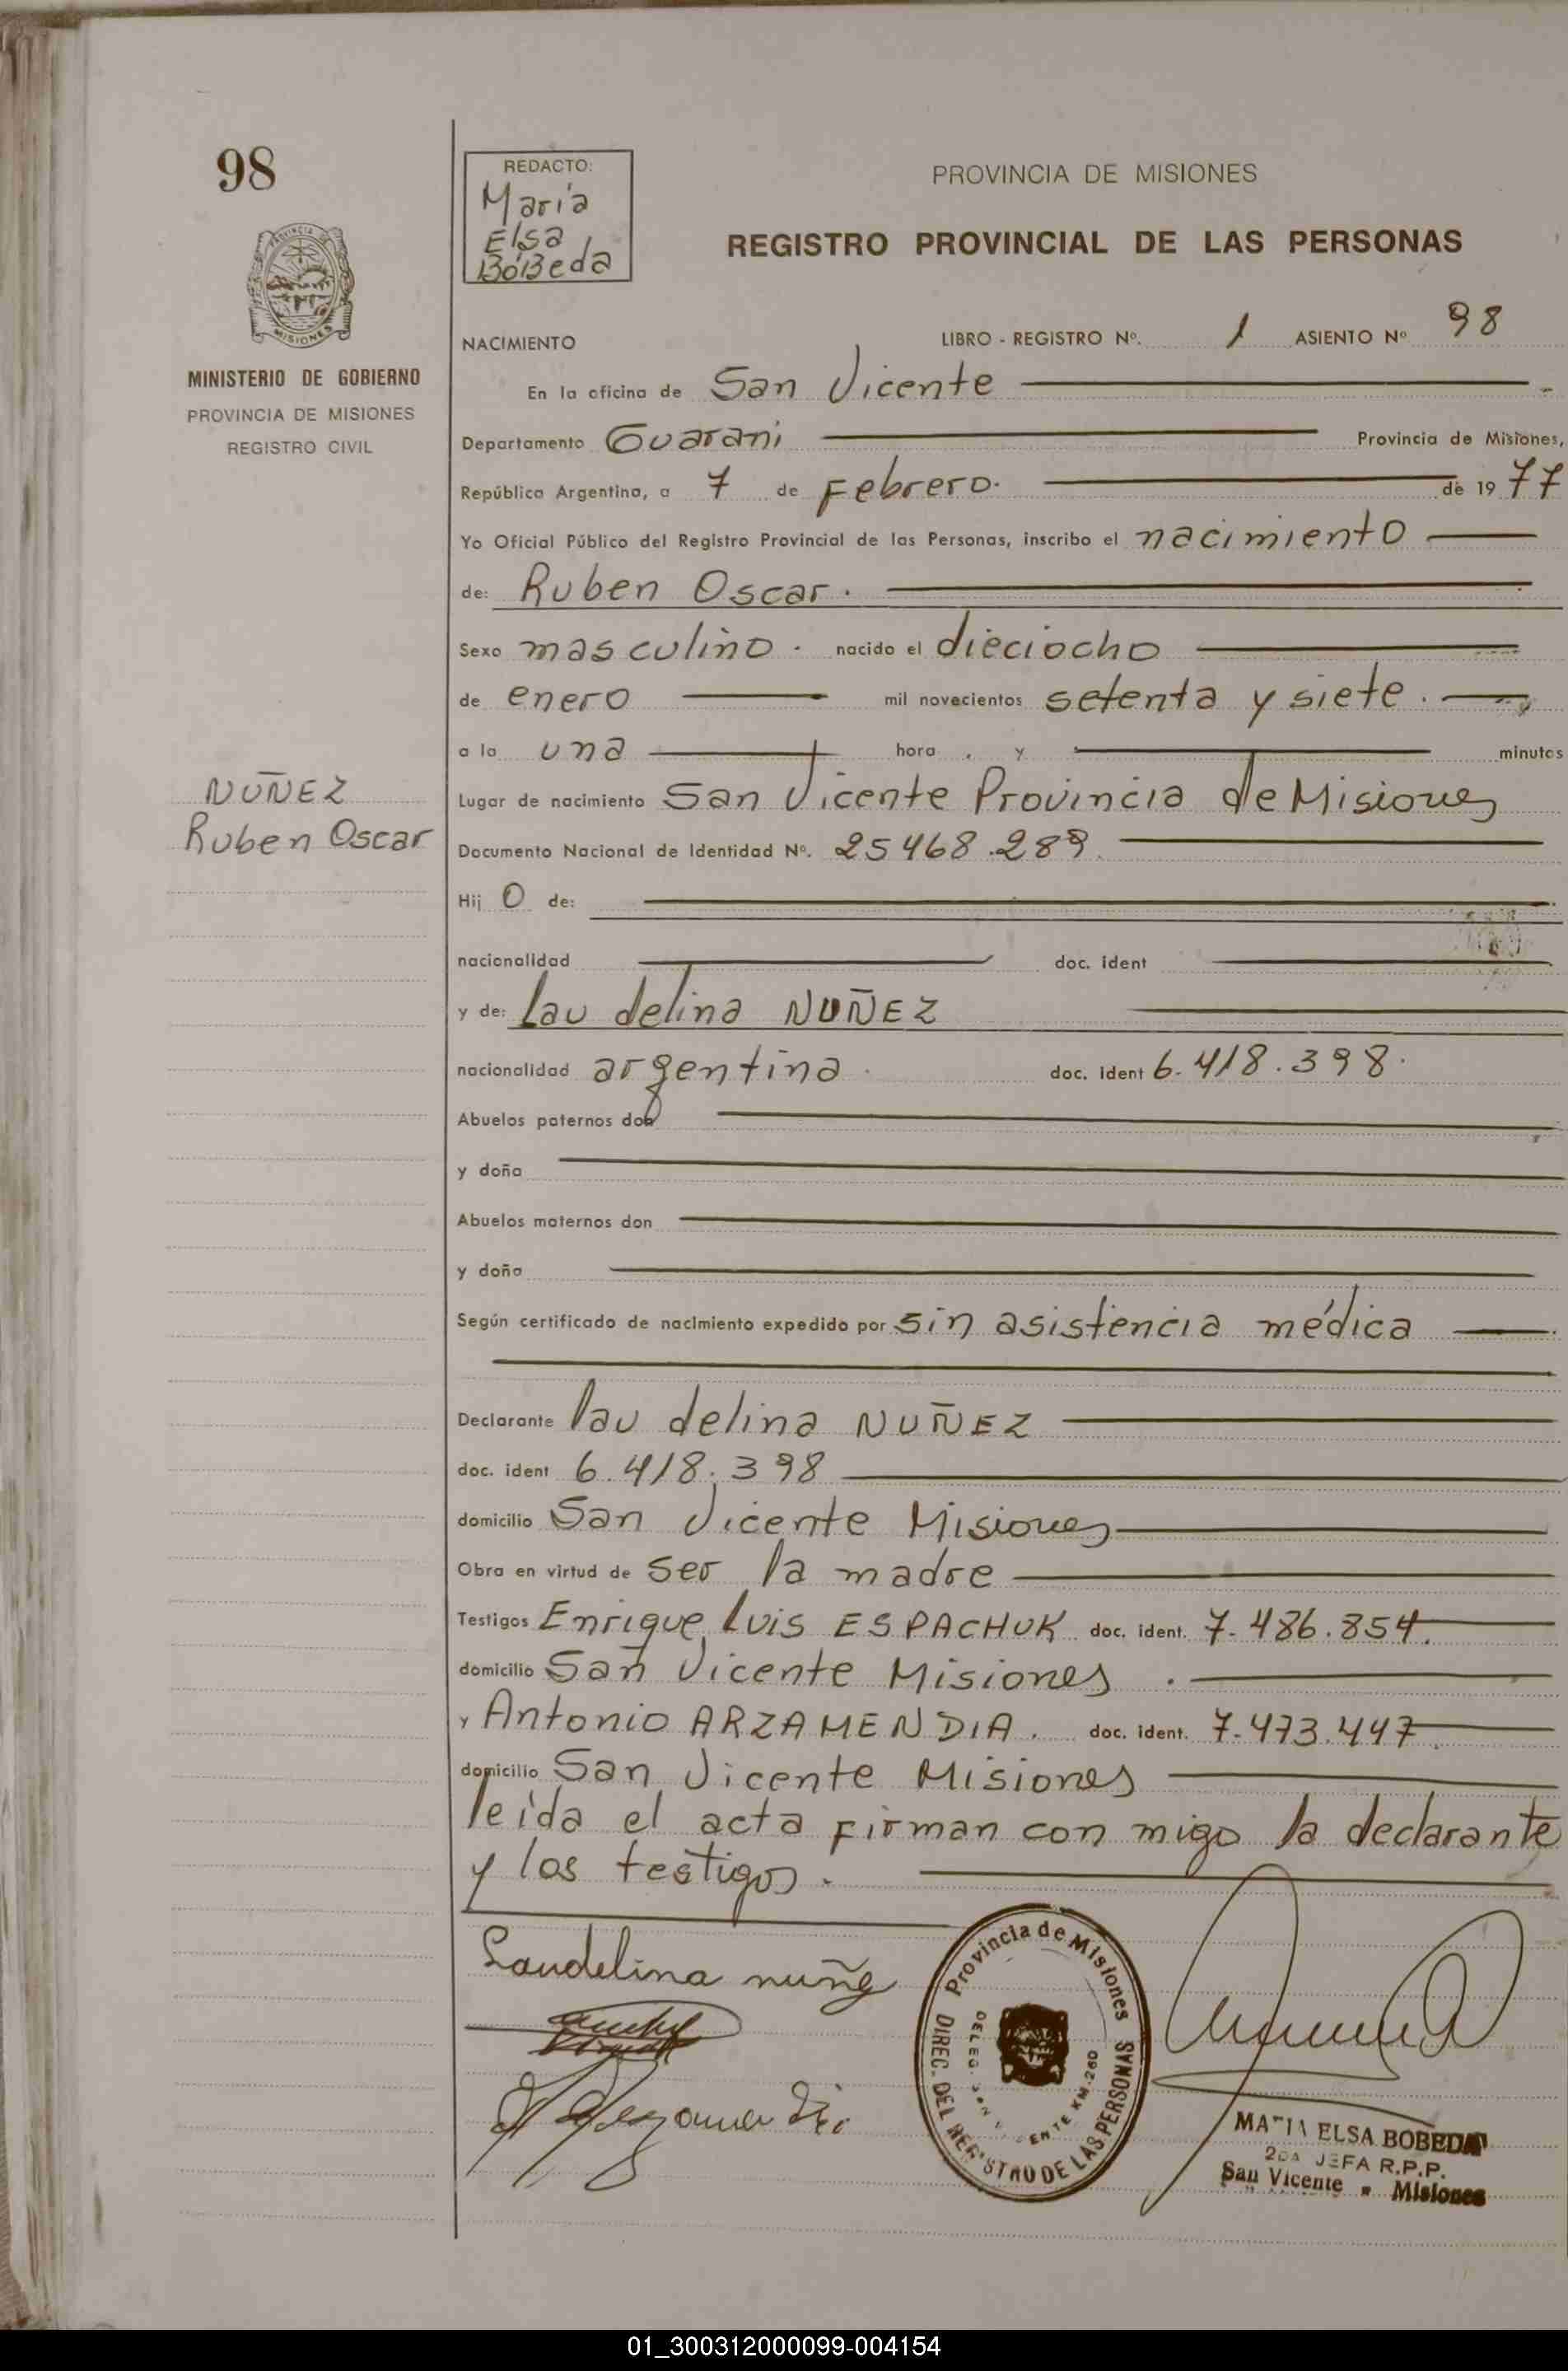 98
PROVINCIA DE
MISIONES
MINISTERIO DE GOBIERNO
PROVINCIA DE MISIONES
REGISTRO CIVIL
NUÑEZ
Ruben Oscar
REDACTO:
María
Elsa
BóBeda
PROVINCIA DE MISIONES
REGISTRO PROVINCIAL DE LAS PERSONAS
NACIMIENTO LIBRO - REGISTRO Nº. 1 ASIENTO Nº 98
En la oficina de San Vicente
Departamento Guarani Provincia de Misiones,
República Argentina, a 7 de Febrero. de 1977
Yo Oficial Público del Registro Provincial de las Personas, inscribo el nacimiento
de: Ruben Oscar.
Sexo masculino. nacido el dieciocho
de enero mil novecientos setenta y siete.
a la una hora. y minutos
Lugar de nacimiento San Vicente Provincia de Misiones
Documento Nacional de Identidad Nº. 25468.289.
Hij o de:
nacionalidad doc. ident
y de: Lau delina NUÑEZ
nacionalidad argentina. doc. ident 6.418.398.
Abuelos paternos don
y doña
Abuelos maternos don
y doña
Según certificado de nacimiento expedido por sin asistencia médica
Declarante lau delina NUÑEZ
doc. ident 6.418.398
domicilio San Vicente Misiones
Obra en virtud de ser la madre
Testigos Enrique Luis ESPACHUK doc. ident. 7.486.854.
domicilio San Vicente Misiones.
y Antonio ARZAMENDIA. doc. ident. 7.473.447.
domicilio San Vicente Misiones
leída el acta Firman con migo la declarante
y los testigos.
Laudelina nuñez
Provincia de Misiones
DIREC. DEL REGISTRO DE LAS PERSONAS
DELEG. SAN VICENTE KM.260
MARIA ELSA BOBEDA
2DA JEFA R.P.P.
San Vicente - Misiones
01_300312000099-004154